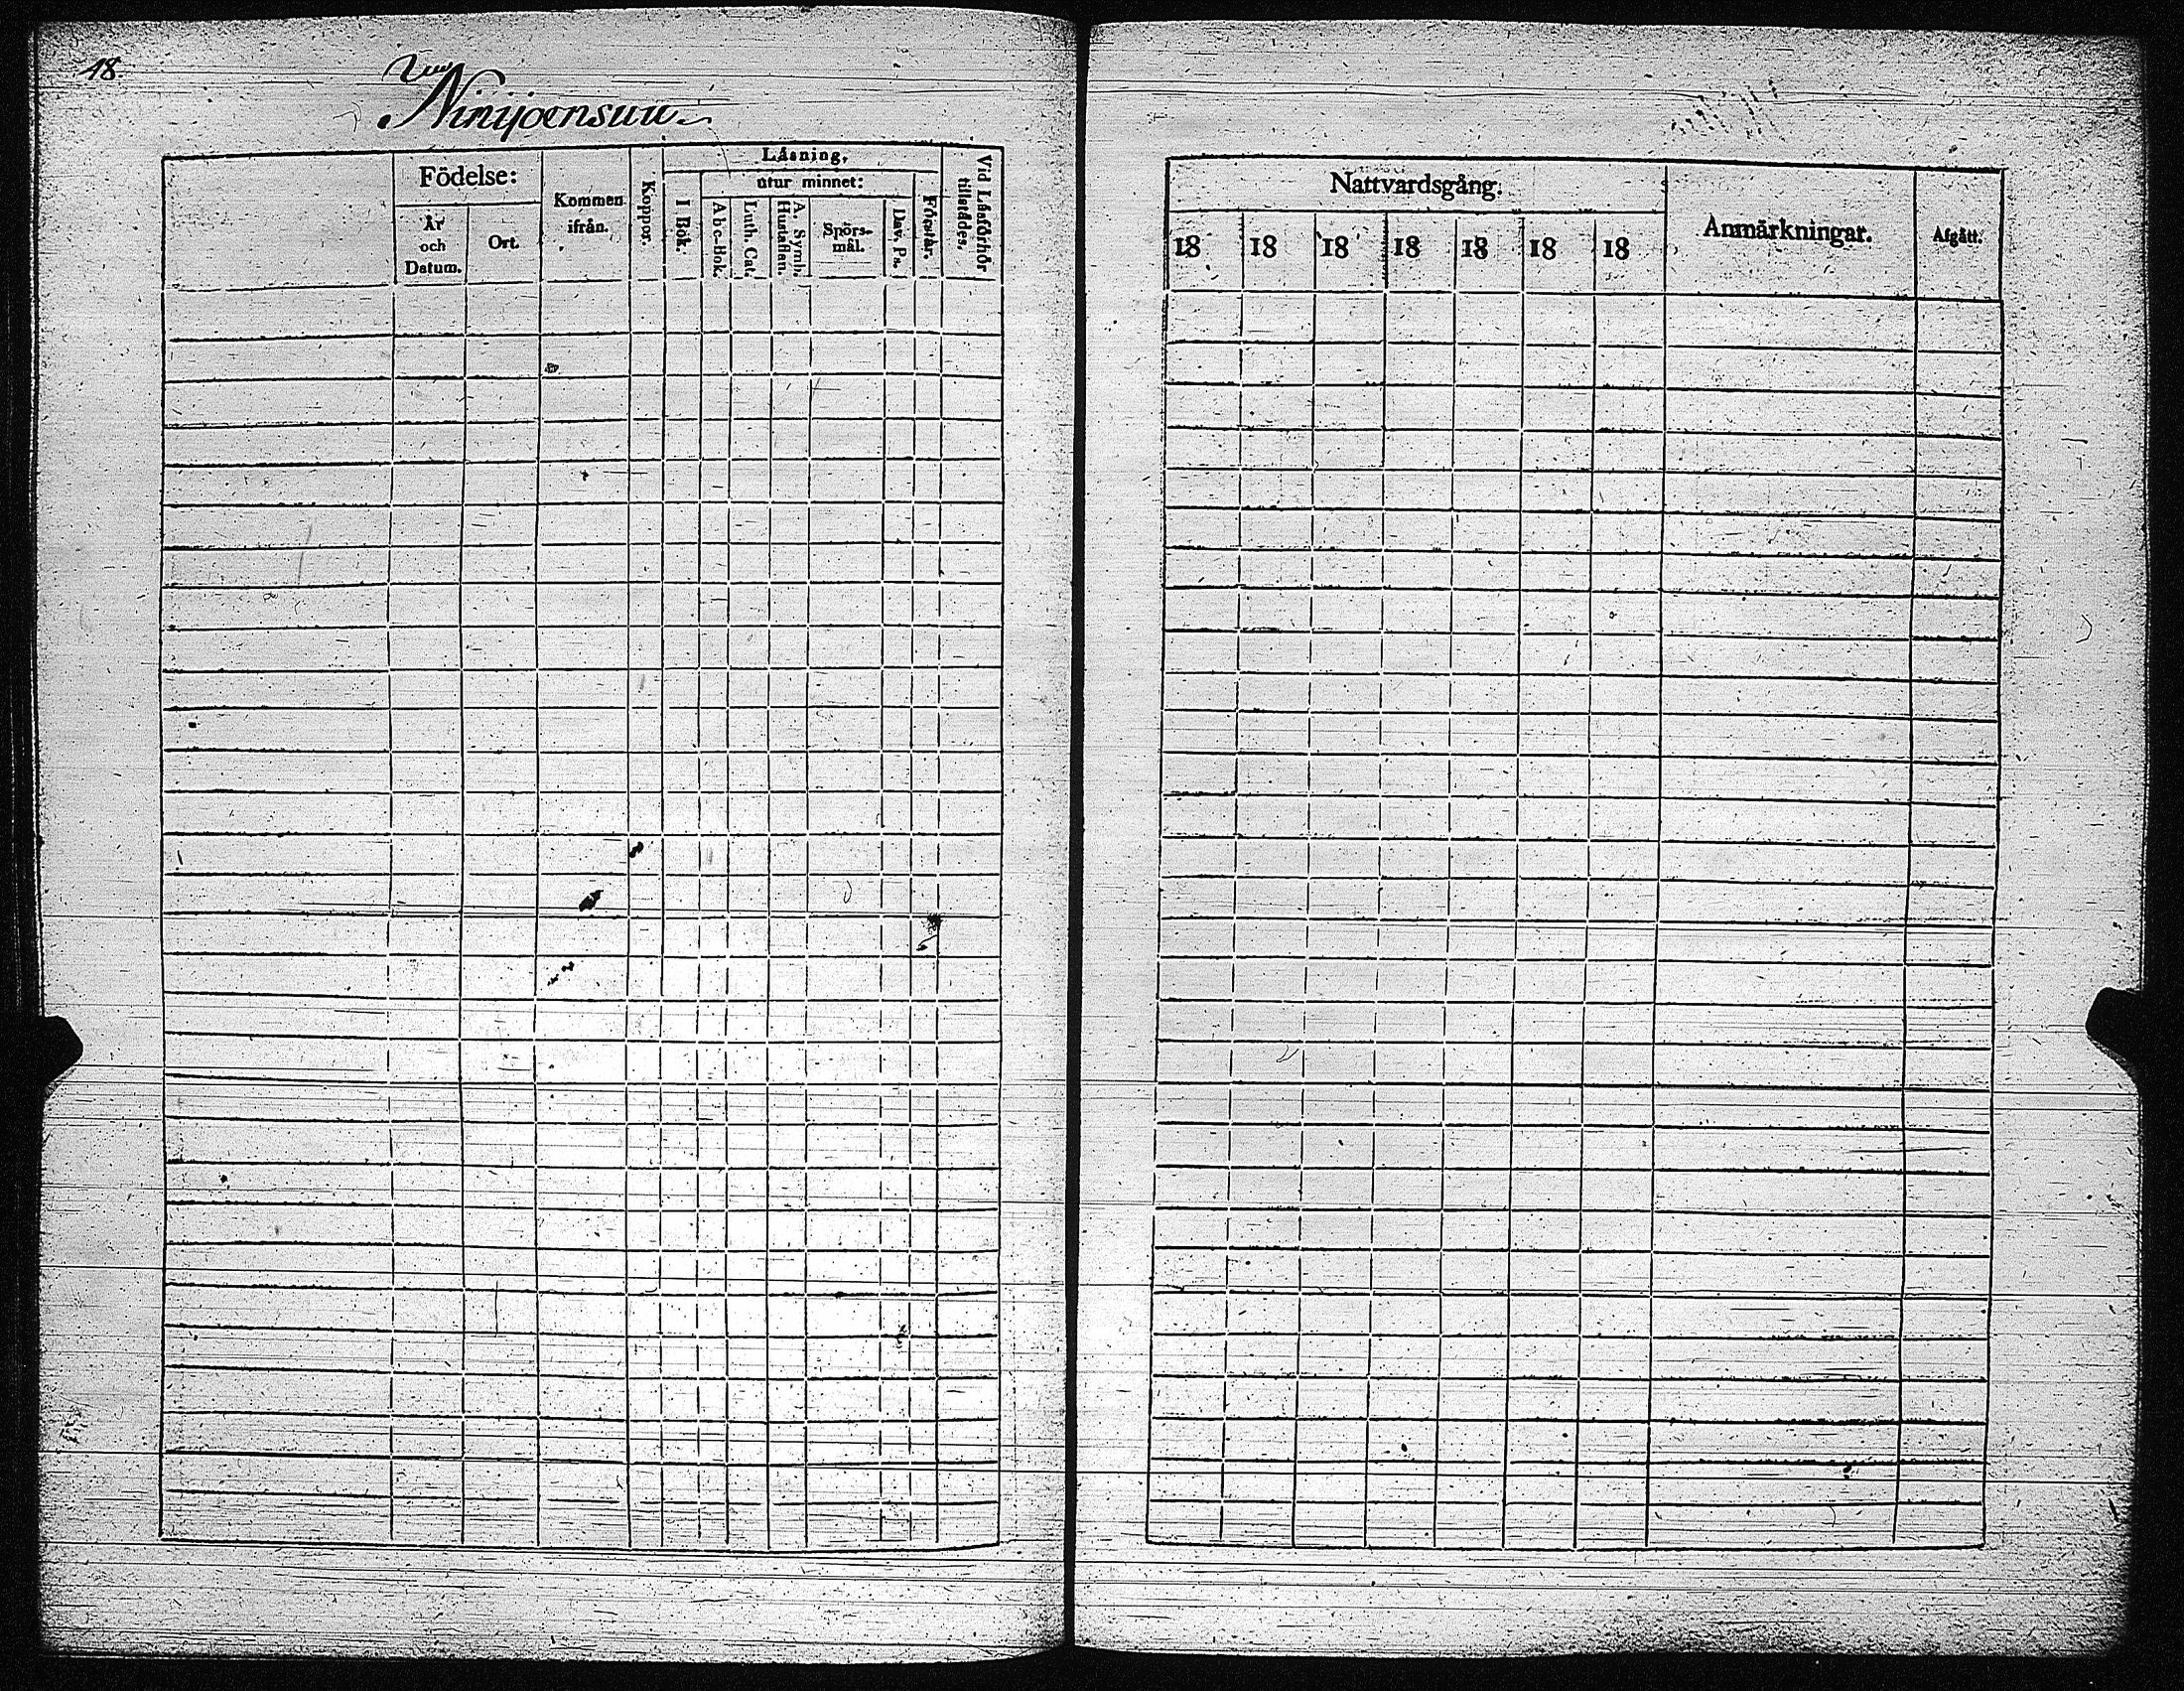 18
Ninijoensuu
Födelse:
År
och
Datum.
Ort.
Kommen
ifrån.
Koppor.
Läsning,
I Bok.
utur minnet:
Abc-Bok.
Luth. Cat.
A. Symb.
Hustaflan.
Spörs-
mål.
Dav. Ps.
Förstår.
Vid Läsförhör
tillstådes.
Nattvardsgång.
18 18 18 18 18 18 18
Anmärkningar.
Afgått.